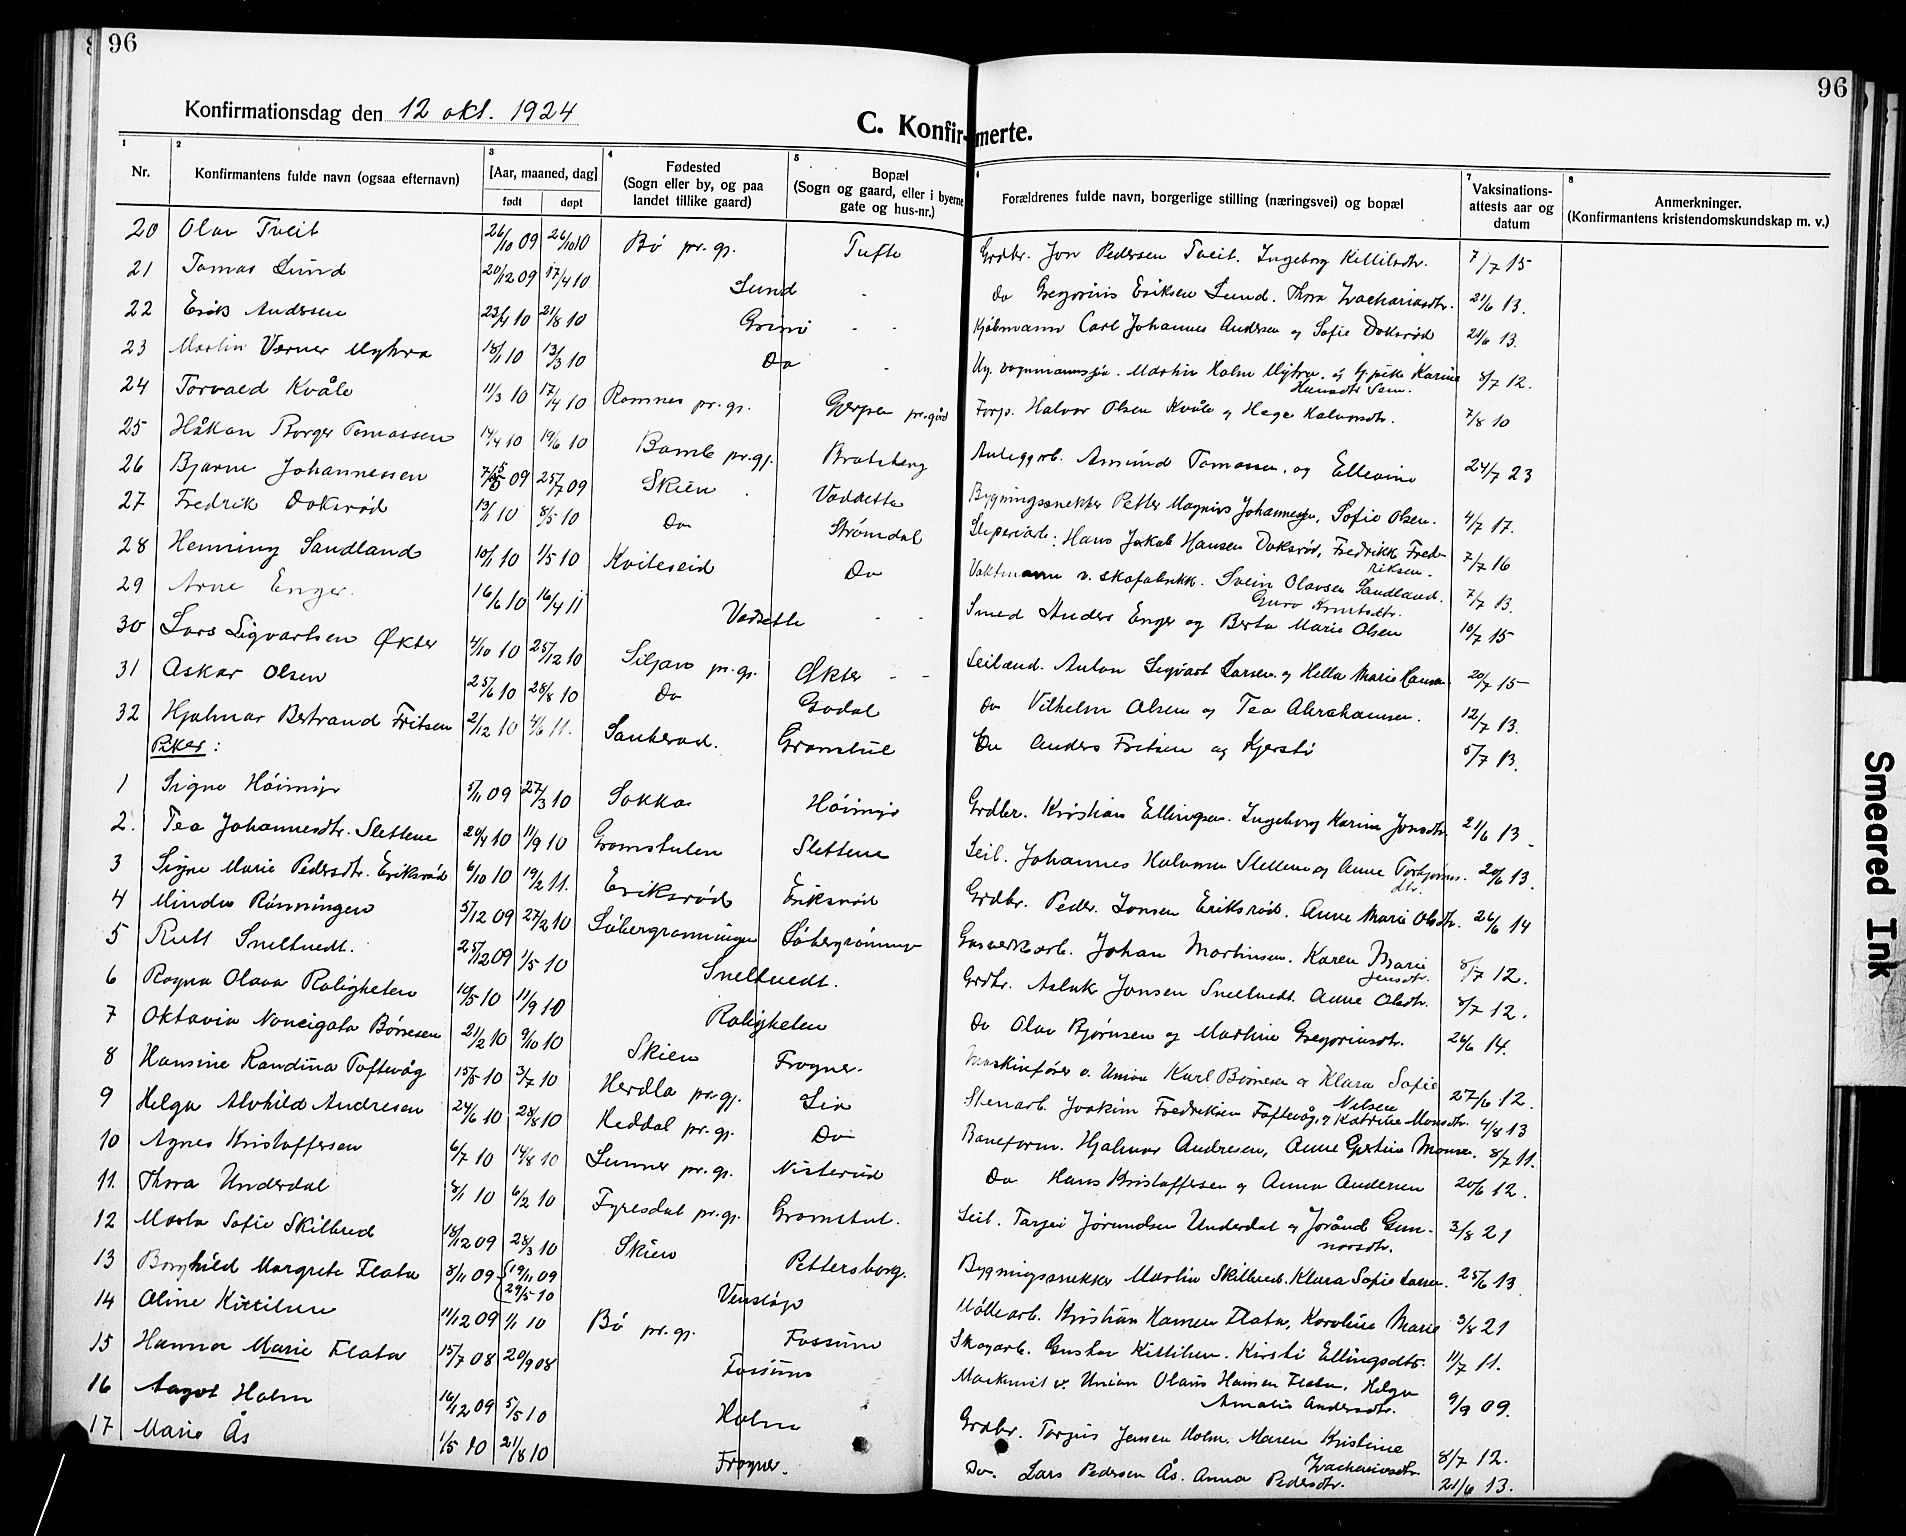 96
96
Konfirmationsdag den 12 okt. 1924
C. Konfirmerte.
1 2 3 4 5 6 7 8
Nr. Konfirmantens fulde navn (ogsaa efternavn) [Aar, maaned, dag] født døpt Fødested (Sogn eller by, og paa landet tillike gaard) Bopæl (Sogn og gaard, eller i byerne gate og hus-nr.) Forældrenes fulde navn, borgerlige stilling (næringsvei) og bopæl Vaksinations-attests aar og datum Anmerkninger. (Konfirmantens kristendomskundskap m. v.)
20 Olav Tveit 26/10 09 26/10 10 Bø pr.gj. Tufte Grdbr. Jon Pedersen Tveit. Ingeborg Kittilsdtr. 7/7 15
21 Tomas Lund 20/12 09 17/4 10 Lund Do Gregorius Eriksen Lund. Thora Zachariasdtr. 21/6 13.
22 Erik Andersen 23/4 10 21/8 10 Grini Kjøbmann Carl Johannes Andersen og Sofie Doksrød 24/6 13.
23 Martin Verner Myhra 18/1 10 13/3 10 Do Ug. vognmannssjø. Martin Holm Myhra. og g. pike Karine Hansdtr Sem. 8/7 12.
24 Torvald Kvåle 11/3 10 17/4 10 Ramnes pr.gj. Gjerpen pr.gård Forp. Halvor Olsen Kvåle og Hege Halvorsdtr. 7/8 10
25 Håkon Borger Tomassen 14/4 10 19/6 10 Bamle pr.gj. Bratsberg Anleggarb. Amund Tomassen, og Ellevine 24/7 23
26 Bjarne Johannessen 7/5 09 25/7 09 Skien Vadsette Bygningssnekker Petter Magnius Johannesen, Sofie Olsen. 4/7 17.
27 Fredrik Doksrød 13/1 10 8/5 10 Do Strømdal Sliperiarb. Hans Jakob Hansen Doksrød, Fredrikke Fredriksen. 7/7 16
28 Henning Sandland 10/1 10 1/5 10 Kviteseid Do Vaktmann v. skofabrikk. Svein Olavsen Sandland. Guro Knutsdtr. 7/7 13.
29 Arne Enger. 16/6 10 16/4 11 Vadsette Smed Anders Enger og Berta Marie Olsen 10/7 15
30 Lars Sigvartsen Økter 4/10 10 25/12 10 Siljan pr.gj. Økter Leilænd. Anton Sigvart Larsen og Hella Marie Hansen 20/7 15
31 Askar Olsen 25/6 10 28/8 10 Do Godal Do Vilhelm Olsen og Tea Abrahamsen. 12/7 13.
32 Hjalmar Bertrand Fritsen 2/12 10 4/6 11. Sauherad. Gromstul Do Anders Fritsen og Kjersti 5/7 13.
Piker:
1 Signe Høimyr 5/11 09 27/3 10 Sokka Høimyr Grdbr. Kristian Ellingsen. Ingeborg Karine Jonsdtr. 21/6 13.
2. Tea Johannesdtr. Slettene 20/4 10 11/9 10 Gromstulen Slettene Leil. Johannes Halvorsen Slettene og Anne Torbjørnsdtr. 20/6 13.
3 Signe Marie Pedersdtr. Eriksrød 6/10 10 19/2 11. Eriksrød Eriksrød Grdbr. Peder Jonsen Eriksrød. Anne Marie Olsdtr. 26/6 14
4 Minda Rønningen 5/12 09 27/2 10 Gasverksarb. Johan Martinsen. Karen Marie Jensdtr. 8/7 12.
5 Rutt Sneltvedt. 25/12 09 1/5 10 Sneltvedt. Grdbr. Aslak Jonsen Sneltvedt. Anne Olsdtr. 8/7 12.
6 Ragna Olava Roligheten 10/5 10 11/9 10 Roligheten Do Olav Bjørnsen og Martine Gregoriusdtr. 26/6 14.
7 Oktavia Børresen 21/2 10 9/10 10 Skien Frogner. Maskinfører v. Union Karl Børresen og Klara Sofie Nilsen 27/6 12.
8 Hansine Randina Toftevåg 15/5 10 3/7 10 Herdla pr.gj. Lia Stenarb. Joakim Fredriksen Toftevåg, og Katrine Monsdtr. 4/8 13
9 Helga Alvhild Andresen 24/6 10 28/8 10 Heddal pr.gj. Do Baneform. Hjalmar Andresen, Anne Gjertine Monsen. 8/7 11.
10 Agnes Kristoffersen 6/7 10 14/8 10 Lunner pr.gj. Nisterud Do Hans Kristoffersen og Anna Andersen 20/6 12.
11. Thora Underdal 8/1 10 6/2 10 Fyresdal pr.gj. Gromstul. Leil. Tarjei Jørundsen Underdal og Jorånd Gunnarsdtr. 3/8 21
12 Marta Sofie Skilbred 18/12 09 28/3 10 Skien Pettersborg. Bygningssnekker Martin Skilbred. Klara Sofie Larsen. 25/6 13.
13 Borghild Margrete Flata 8/11 09 19/11 09 29/5 10 Venstøp Møllearb. Kristian Hansen Flata, Karoline Marie 3/8 21
14 Aline Kittilsen 11/12 09 1/1 10 Bø pr.gj. Fossum Skogarb. Gustav Kittilsen. Kirsti Ellingsdtr. 11/7 11.
15 Hanna Marie Flata 15/7 08 20/9 08 Fossum v. Union Olaus Hansen Flata, Helga Amalie Andersdtr. 9/9 09.
16 Aagot Holm 16/12 09 5/5 10 Holm Grdbr. Torgius Jensen Holm. Maren Kristine Zachariasdtr 8/7 12.
17 Marie Ås 1/5 10 21/8 10 Frogner. Do. Lars Pedersen Ås. Anna Pedersdtr. 21/6 13.
Smeared Ink